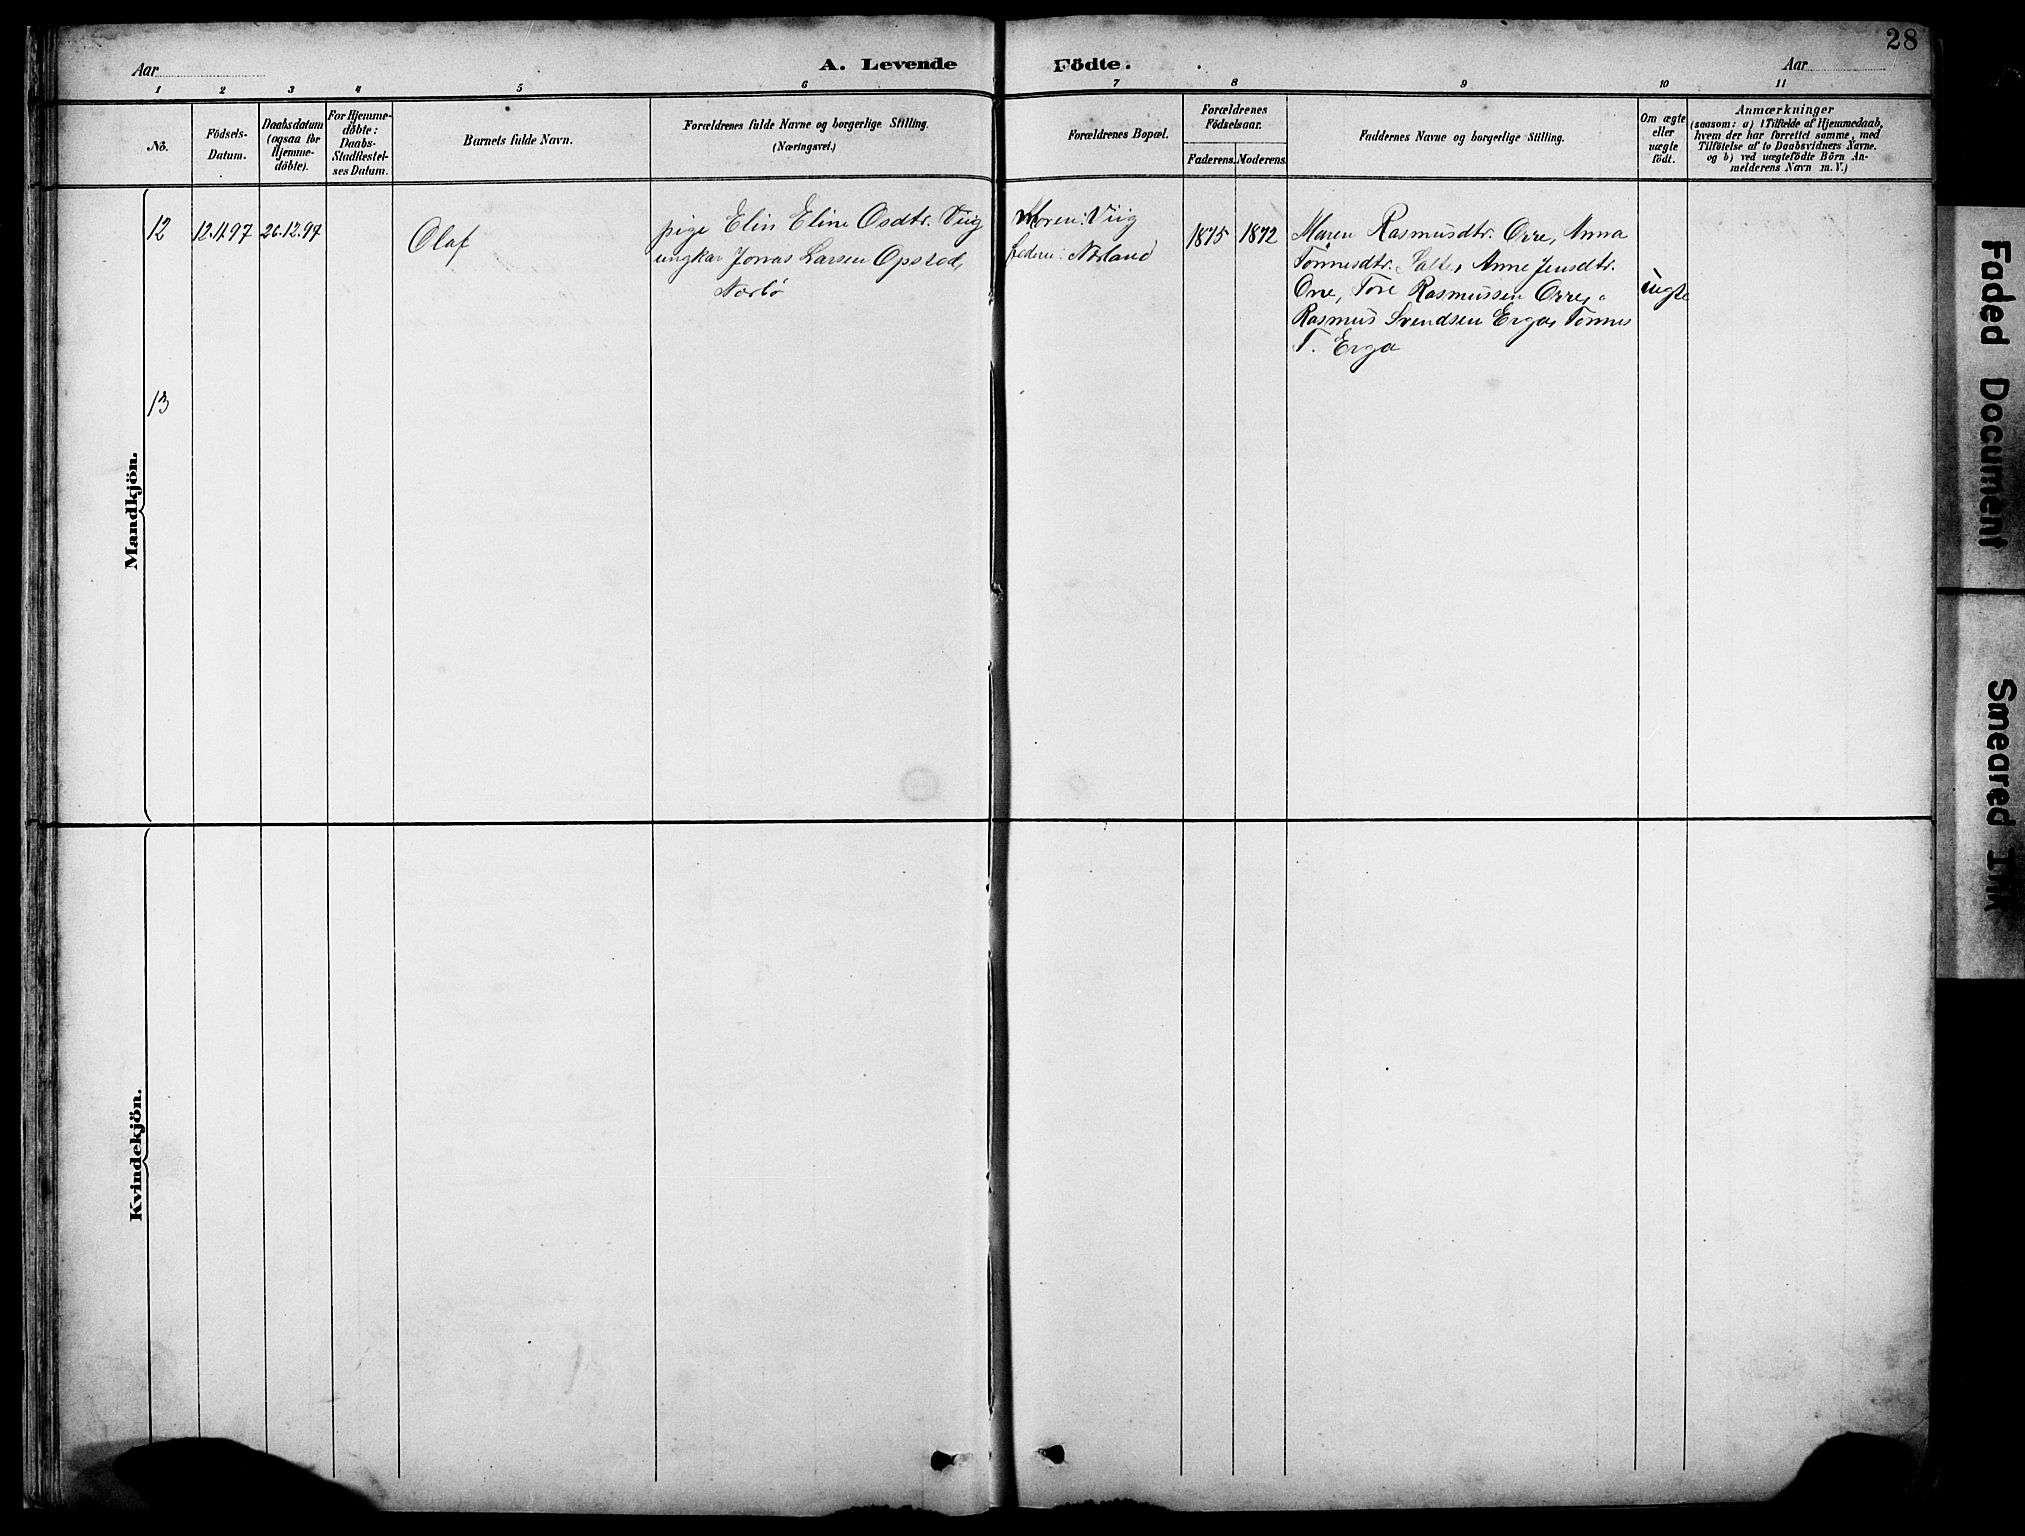 28
Aar
A. Levende Födte.
Aar
1 2 3 4 5 6 7 8 9 10 11
No.
Födsels-
Datum.
Daabsdatum
(ogsaa for
Hjemme-
döbte).
For Hjemme-
döbte:
Daabs-
Stadfæstel-
ses Datum.
Barnets fulde Navn.
Forældrenes fulde Navne og borgerlige Stilling.
(Næringsvei.)
Forældrenes Bopæl.
Forældrenes
Födselsaar.
Faderens. Moderens.
Faddernes Navne og borgerlige Stilling.
Om ægte
eller
uægte
födt.
Anmærkninger
(saasom: a) i Tilfælde af Hjemmedaab,
hvem der har forrettet samme, med
Tilföielse af to Daabsvidners Navne,
og b) ved uægtefödte Börn An-
melderens Navn m. V.)
Mandkjön.
12
12.11.97
26.12.97
Olaf
pige Elin Eline Osdtr. Viig
ungkar Jonas Larsen Opstad,
Nærbø
Moren: Viig
faderen: Nærland
1875
1872
Maren Rasmusdtr. Orre, Anna
Tønnesdtr. Salte, Anne Jensdtr.
Orre, Tore Rasmussen Orre,
Rasmus Svendsen Erga, Tønnes
T. Erga
uægte
13
Kvindekjön.
Faded Document
Smeared Ink